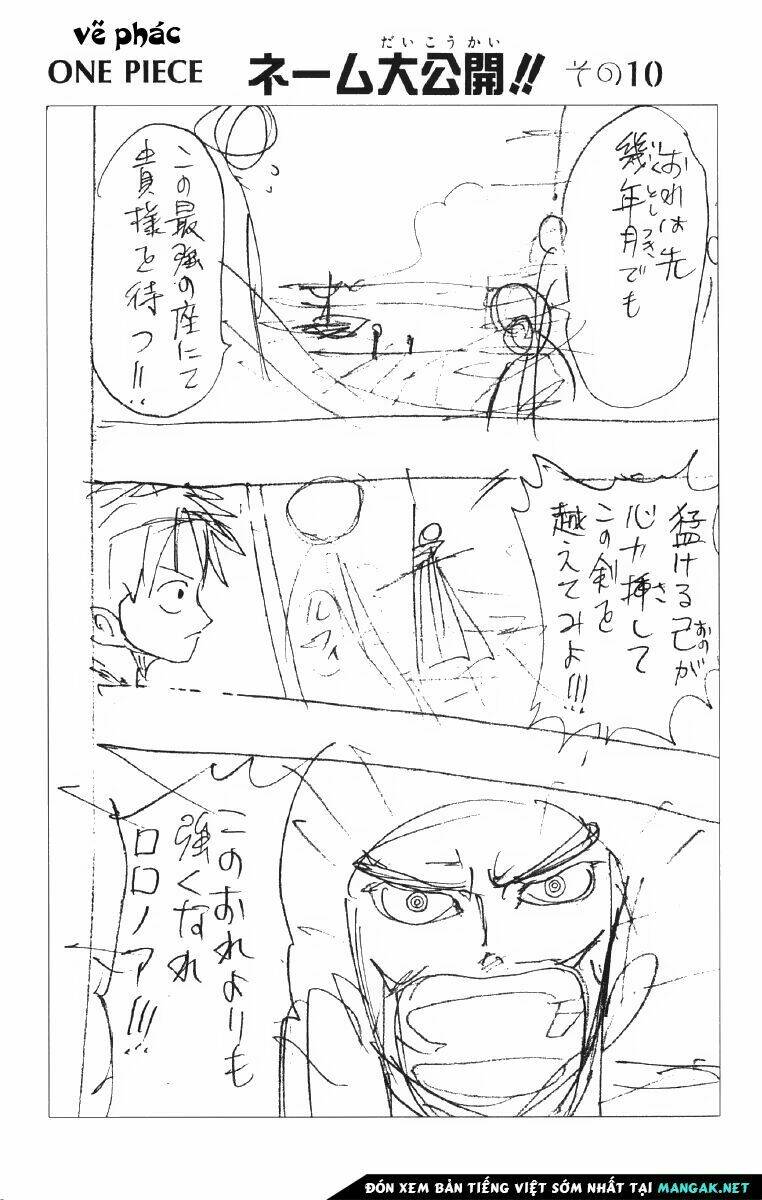 vẽ phác
ONE PIECE ネーム大公開!! その10
だいこうかい
おれは先
幾年月でも
いくとしつき
この最強の座にて
貴様を待つ!!
猛ける己が
おの
心力挿して
さ
この剣を
越えてみよ!!!
ルフィ
このおれよりも
強くなれ
ロロノア!!!
ĐÓN XEM BẢN TIẾNG VIỆT SỚM NHẤT TẠI MANGAK.NET